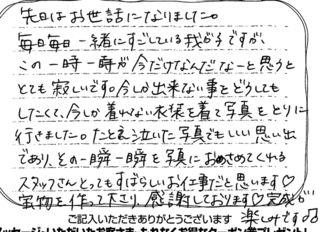 先日はお世話になりました。
毎日毎日一緒にすごしている我が子ですが、
この一時一時が今だけなんだなーと思うと
とても寂しいです。今しか出来ない事をどうしても
したくて、今しか着れない衣装を着て写真をとりに
行きました。たとえ泣いた写真でもいい思い出
であり、その一瞬一瞬を写真におさめてくれる
スタッフさんとってもすばらしいお仕事だと思います♡
宝物を作って下さり、感謝しております♡完成が
楽しみです♫
ご記入いただきありがとうございます